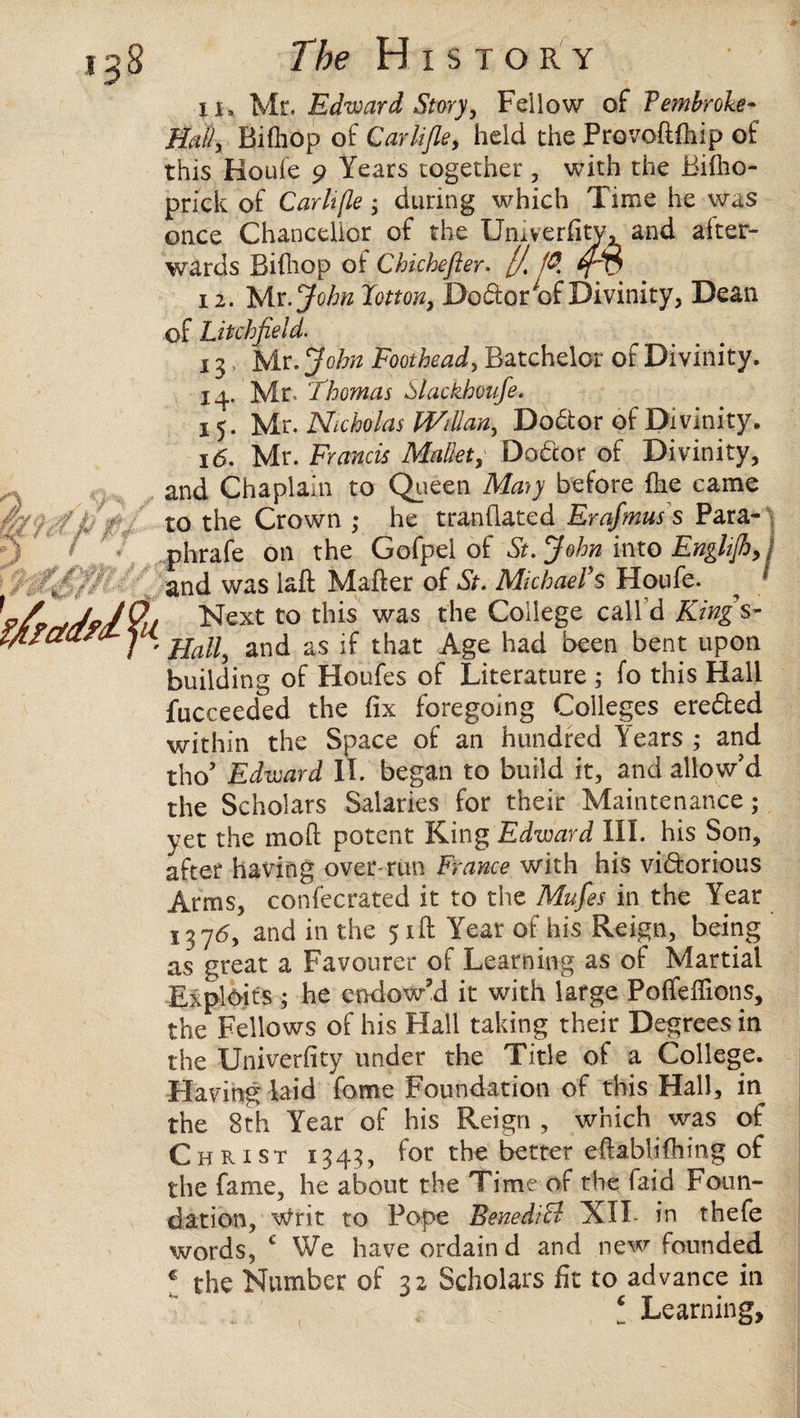 138 The HISTORY
11. Mr. Edward Story, Fellow of Pembroke-
Hall, Biſhop of Carliſle, held the Provoſtſhip of
this Houſe 9 Years together, with the Biſho-
prick of Carliſle; during which Time he was
once Chancellor of the Univerſity, and after-
wards Biſhop of Chicheſter.
12. Mr. John Yotton, Doctor of Divinity, Dean
of Litchfield.
13. Mr. John Foothead, Batchelor of Divinity.
14. Mr. Thomas Slackhouſe.
15. Mr. Nicholas Willan, Doctor of Divinity.
16. Mr. Francis Mallet, Doctor of Divinity,
and Chaplain to Queen Mary before ſhe came
to the Crown; he tranſlated Eraſmus's Para-
phraſe on the Goſpel of St. John into Engliſh,
and was laſt Maſter of St. Michael's Houſe.
Next to this was the College call'd King's-
Hall, and as if that Age had been bent upon
building of Houſes of Literature; ſo this Hall
ſucceeded the ſix foregoing Colleges erected
within the Space of an hundred Years; and
tho' Edward II. began to build it, and allow'd
the Scholars Salaries for their Maintenance;
yet the moſt potent King Edward III. his Son,
after having over-run France with his victorious
Arms, conſecrated it to the Muſes in the Year
1376, and in the 51ſt Year of his Reign, being
as great a Favourer of Learning as of Martial
Exploits; he endow'd it with large Poſſeſſions,
the Fellows of his Hall taking their Degrees in
the Univerſity under the Title of a College.
Having laid ſome Foundation of this Hall, in
the 8th Year of his Reign, which was of
CHRIST 1343, for the better eſtabliſhing of
the ſame, he about the Time of the ſaid Foun-
dation, writ to Pope Benedict XII. in theſe
words, ‘ We have ordain'd and new founded
‘ the Number of 32 Scholars fit to advance in
‘ Learning,